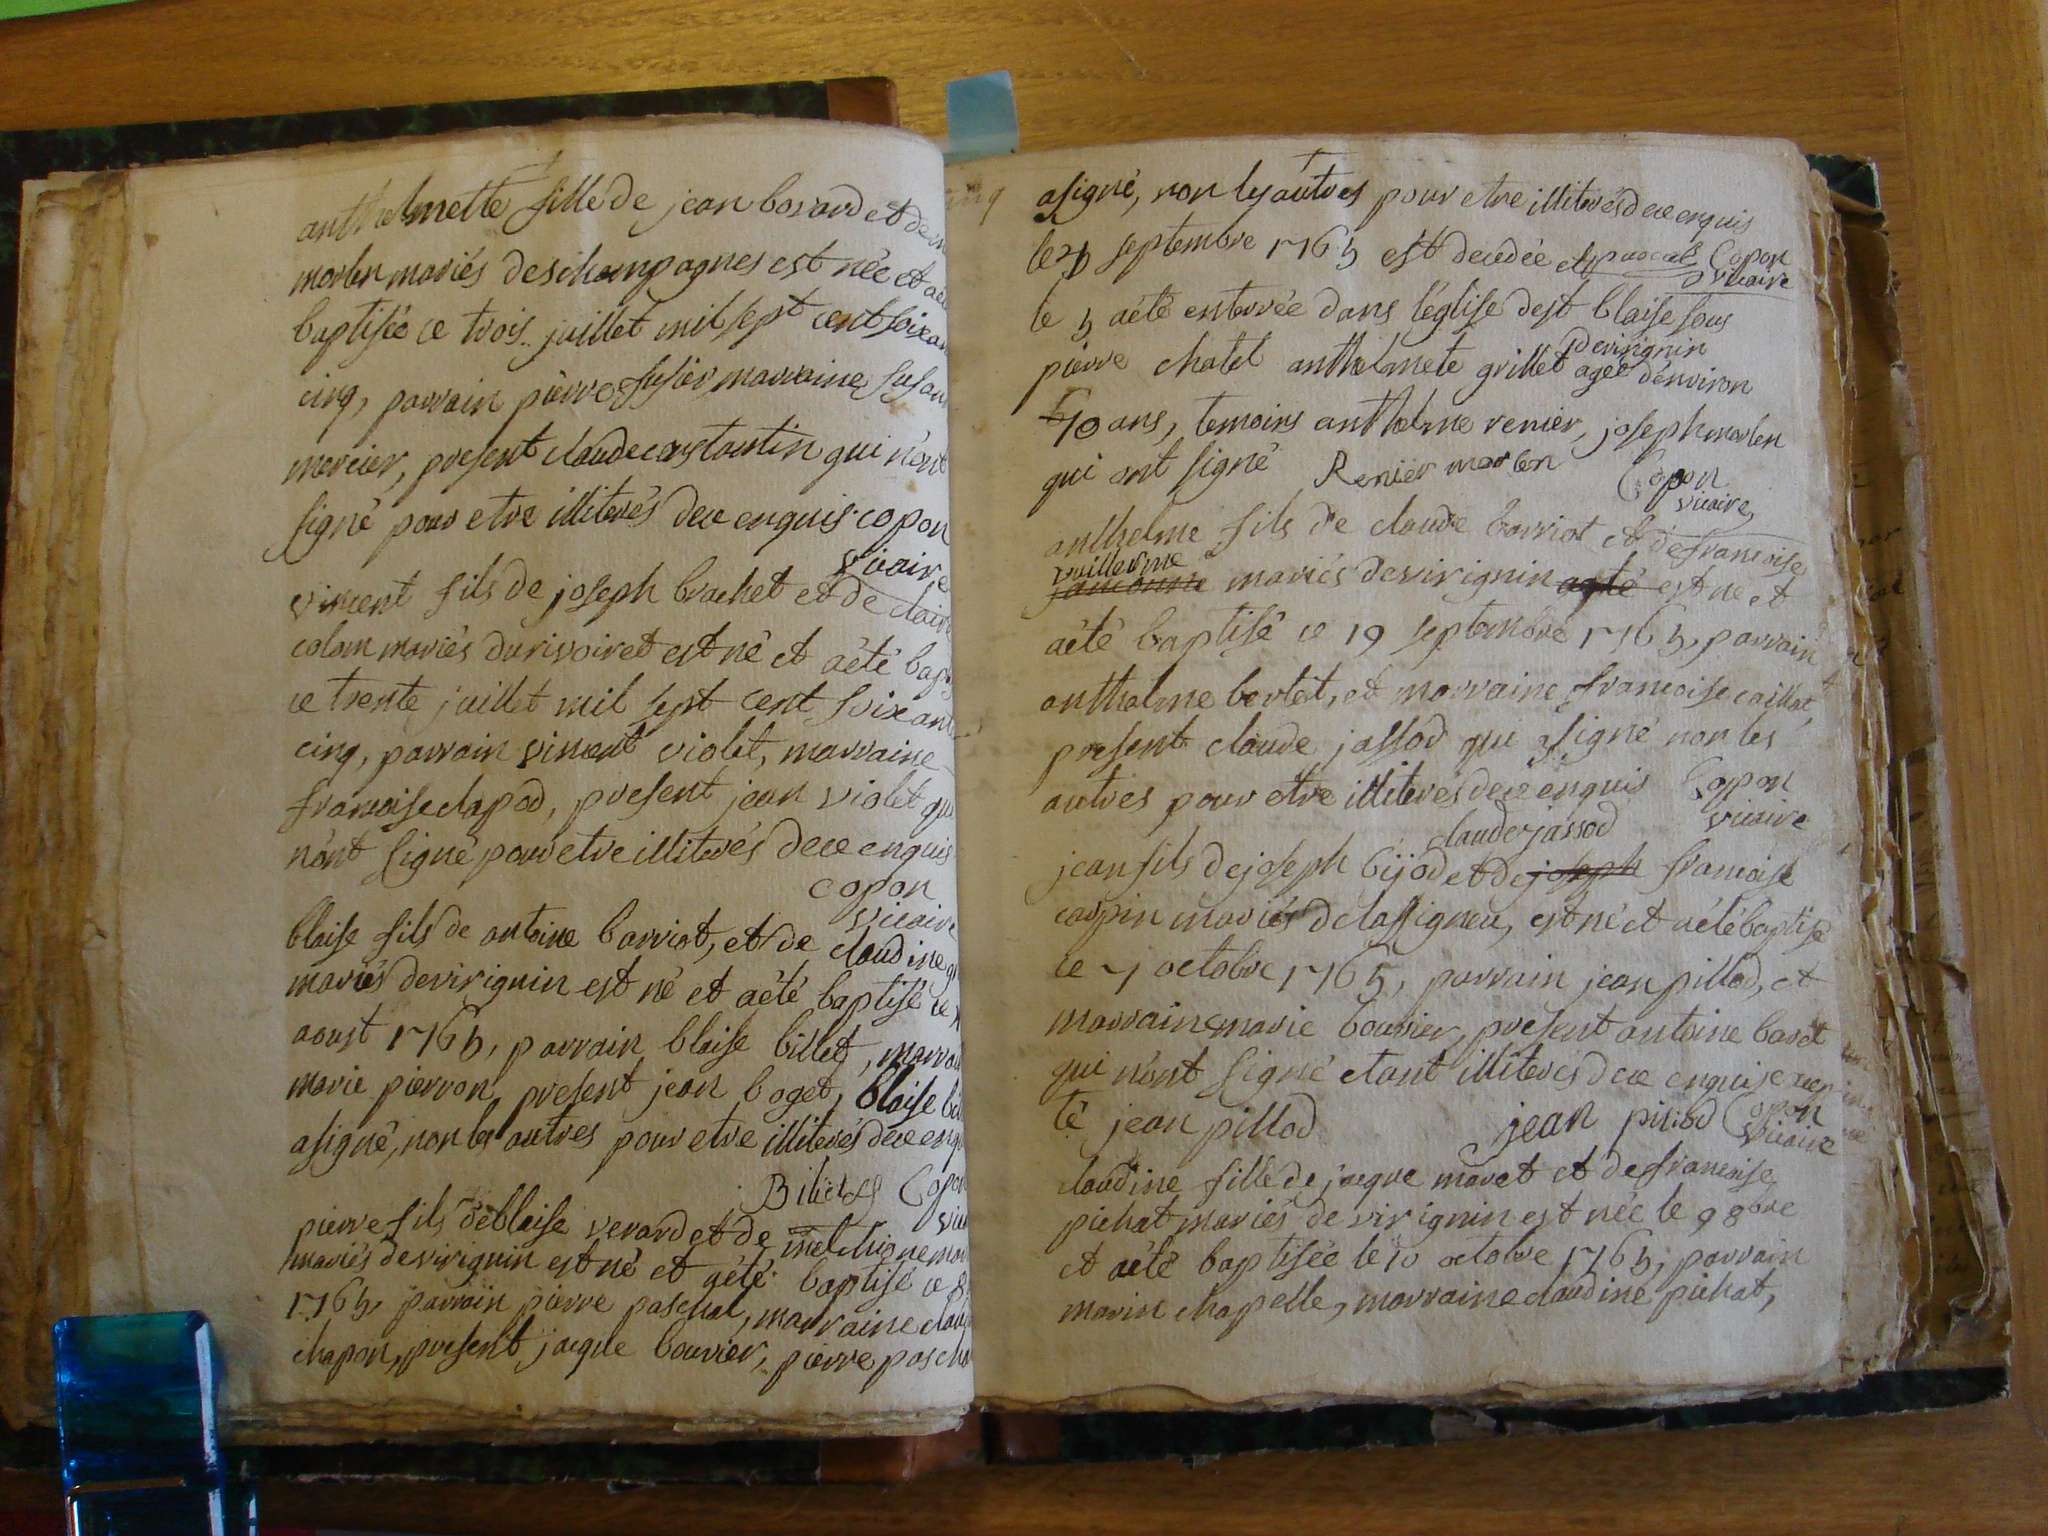 anthelmette fille de jean bovard et de
morlon mariés deschampagnes est née et aété
baptisée ce trois juillet mil sept cent soixan
cinq, parrain pierre marraine
mercier, present claude constantin qui n'ont
signé pour etre illiterés dece enquis copon
vicaire
vincent fils de joseph brachet et de claire
colom mariés du rivoiret est né et aété bap
ce trente juillet mil sept cent soixant
cinq, parrain vincent violet, marraine
francoise clapod, present jean violet qui
n'ont signé pour etre illiterés dece enquis
copon
vicaire
blaise fils de antoine barriot, et de claudine
mariés de virignin est né et aété baptisé ce
aoust 1765, parrain blaise billet, marrai
marie pierron, present jean boget, blaise bil
asigné, non les autres pour etre illiterés dece enqu
Biliet Copon
vicai
pierre fils de blaise verard et de melchione
mariés de virignin est né et aété baptisé ce 8
1765, parrain pierre paschal, marraine clau
chapon, present jacque bouvier, pierre pascha
asigné, non les autres pour etre illiterés dece enquis
pascal Copon
vicaire
le septembre 1765 est decedée et
le 5 aété enterrée dans l'église de st blaise sous
devirignin
pierre chatel anthelmete grillet agée d'environ
70 ans, temoins anthelme renier, joseph morlon
qui ont signé Renier morlon Copon
vicaire
anthelme fils de claude barriot et de francoise
vuillerme
mariés de virignin agté est ne et
aété baptisé ce 19 septembre 1765, parrain
anthelme berlet, et marraine francoise caillat,
present claude jassod qui asigné non les
autres pour etre illiterés dece enquis Copon
claude jassod vicaire
jean fils de joseph bijod et de joseph francoise
carpin mariés de lassigneu, est né et aété baptisé
ce 7 octobre 1765, parrain jean pillod, et
marraine marie bouvier, present antoine baret
qui n'ont signé etant illiterés dece enquis excep
té jean pillod jean pillod Copon
vicaire
claudine fille de jacque maret et de francoise
pichat mariés de virignin est née le 9 8bre
et aété baptisée le 10 octobre 1765, parrain
marin chapelle, marraine claudine pichat,